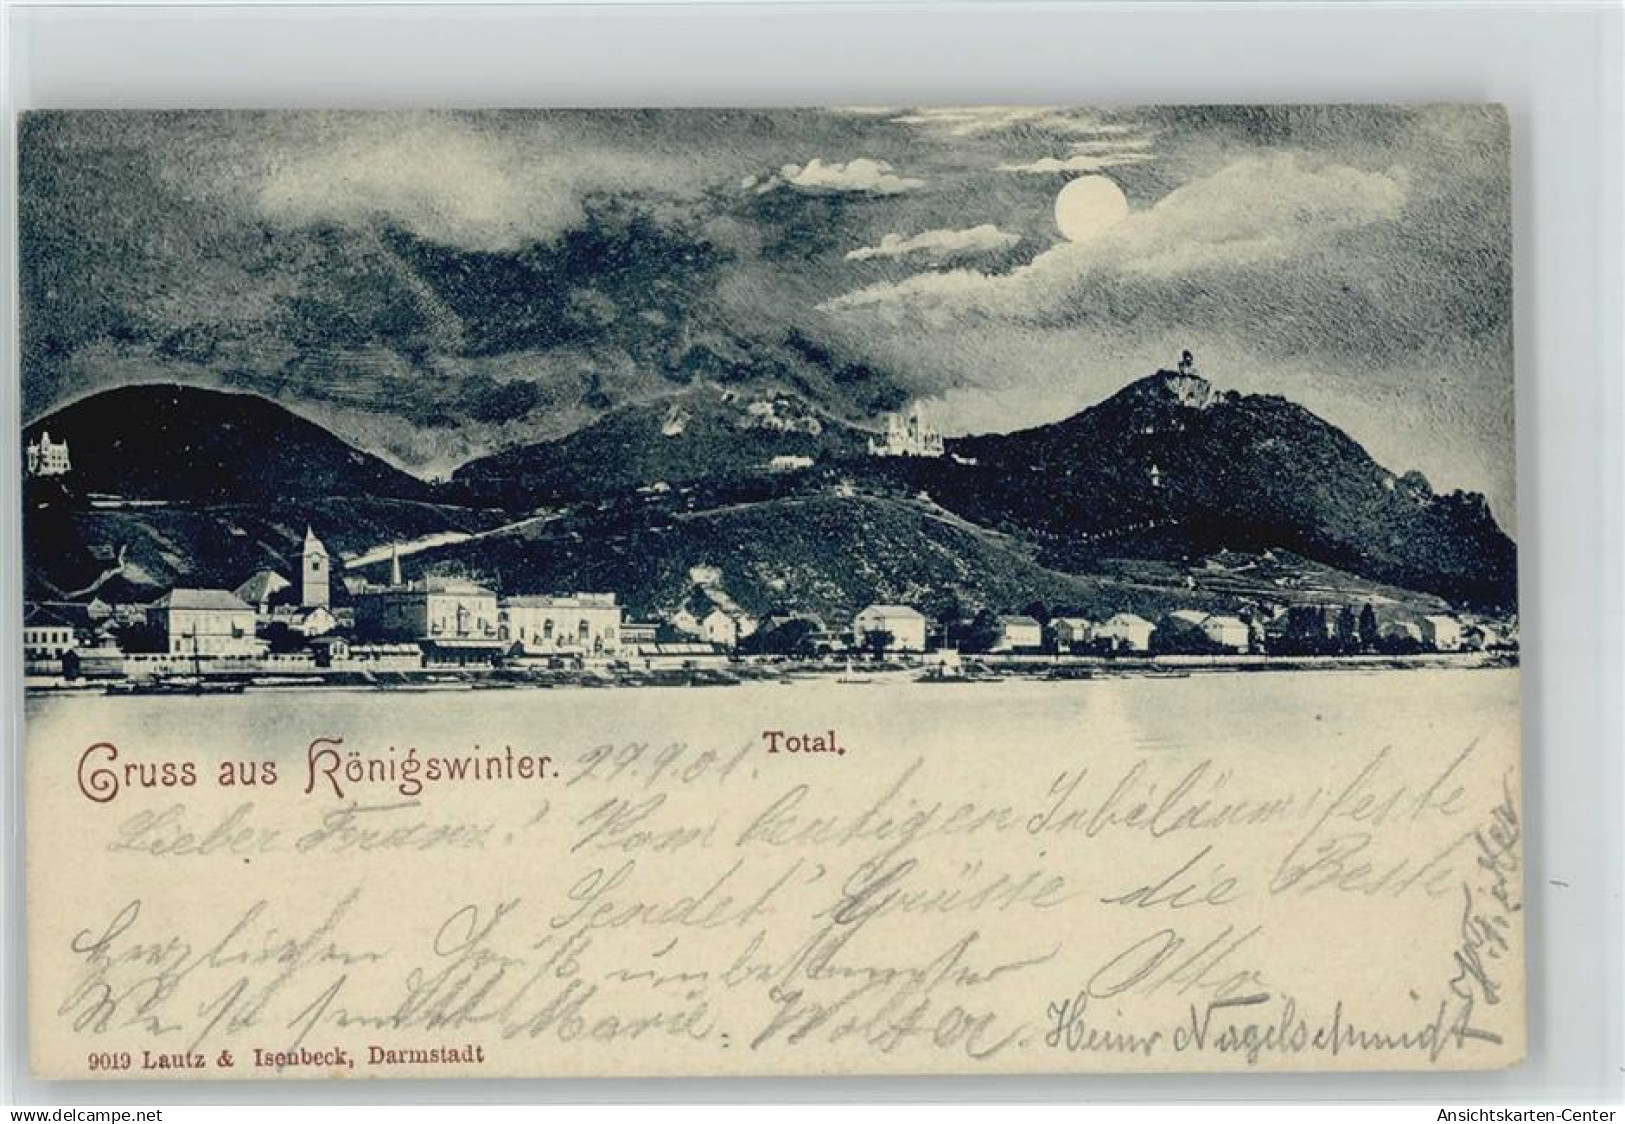 Total.
Gruss aus Königswinter. 29.9.01.
Lieber Franz! Vom heutigen Jubiläumsfeste
Sendet Grüsse die Beste
Otto
Herzlichen Gruß unbekannter
Weise sendet Marie Wolter.
Heinr Nagelschmidt
9019 Lautz & Isenbeck, Darmstadt
www.delcampe.net
Ansichtskarten-Center